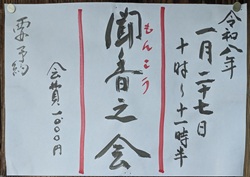 令和八年
一月二十七日
十時〜十一時半
聞香之会
もんこう
会費一〇〇〇円
要予約